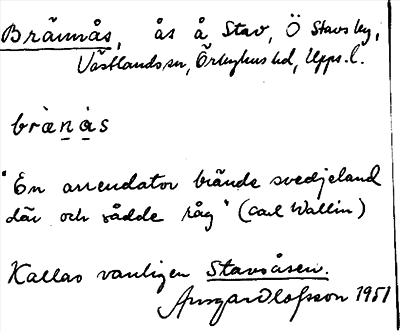 Brännås, ås å Stav, Ö Stavsby,
Västlands sn, Örbyhus hd, Upps. l.
brä̀nås
"En arrendator brände svedjeland
där och sådde råg" (Carl Wallin)
Kallas vanligen Stavsåsen.
Ansgar Olofsson 1951